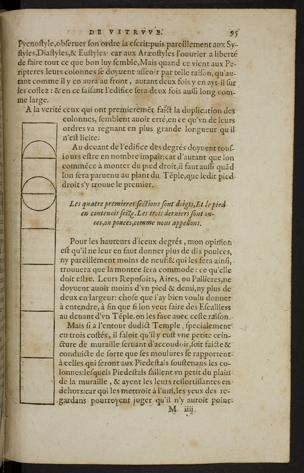 DE VITRVVE. 95
Pycnostyle, obseruer son ordre ia escrit: puis pareillement aux Sy-
styles, Diastyles, & Eustyles: car aux Aræostyles l'ouurier a liberté
de faire tout ce que bon luy semble. Mais quand ce vient aux Pe-
ripteres leurs colonnes se doyuent asseoir par telle raison, qu'au-
tant comme il y en aura au front, autant deux fois y en ayt-il sur
les costez: & en ce faisant l'edifice sera deux fois aussi long com-
me large.
A la verité ceux qui ont premieremẽt faict la duplication des
colonnes, semblent auoir erré, en ce qu'vn de leurs
ordres va regnant en plus grande longueur qu'il
n'est licite.
Au deuant de l'edifice des degrés doyuent tous-
iours estre en nombre impair: cat d'autant que lon
commẽce à monter du pied droit, il faut aussi quãd
lon sera paruenu au plant du Tẽple, que ledit pied
droit s'y trouue le premier.
Les quatre premieres sections sont doigts, Et le pied
en contenoit seize. Les trois derniers sont on-
ces, ou pouces, comme nous appellons.
Pour les hauteurs d'iceux degrés, mon opinion
est qu'il ne leur en faut donner plus de dix poulces,
ny pareillement moins de neuf: & qui les fera ainsi,
trouuera que la montee sera commode: ce qu'elle
doit estre. Leurs Reposoirs, Aires, ou Pallieres, ne
doyuent auoir moins d'vn pied & demi, ny plus de
deux en largeur: chose que i'ay bien voulu donner
à entendre, à fin que si lon veut faire des Escalliers
au deuant d'vn Tẽple, on les face auec ceste raison.
Mais si a l'entour dudict Temple, specialement
en trois costés, il faloit qu'il y eust vne petite cein-
cture de muraille seruant d'accoudoir, soit faicte &
conduicte de sorte que ses moulures se rapportent
à celles qui seront aux Piedestals soustenans les co-
lonnes: lesquels Piedestals saillent vn petit du plain
de la muraille, & ayent les leurs ressortissantes en
dehors: car qui les mettroit à l'uni, les yeux des re-
gardans pourroyent iuger qu'il n'y auroit point
M iiij